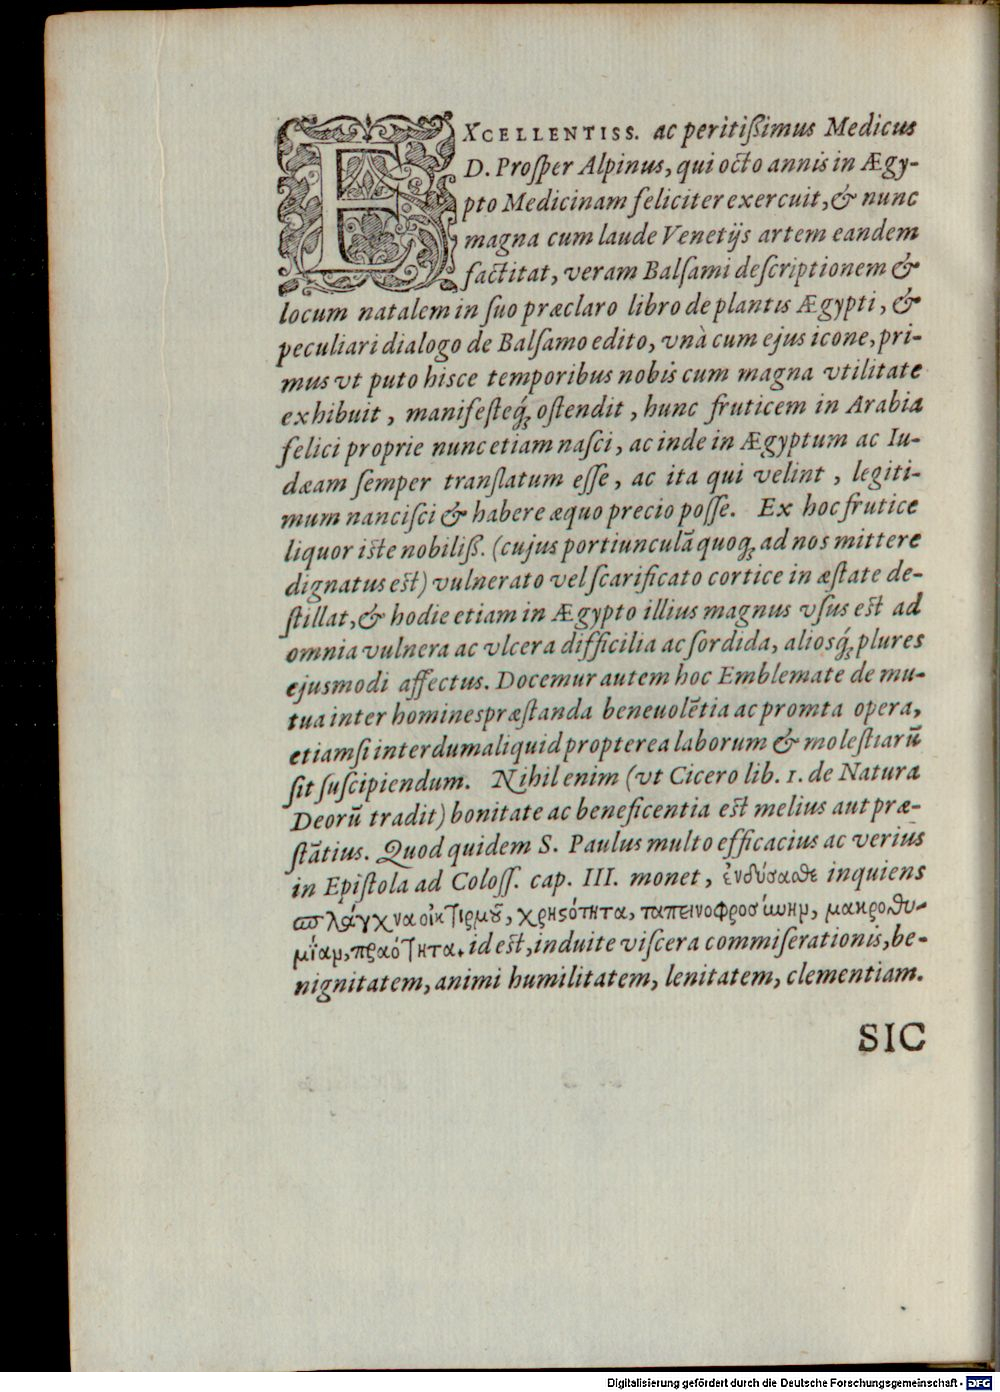 EXCELLENTISS. ac peritißimus Medicus
D. Proſper Alpinus, qui octo annis in Ægy-
pto Medicinam feliciter exercuit, & nunc
magna cum laude Venetijs artem eandem
factitat, veram Balſami deſcriptionem &
locum natalem in ſuo præclaro libro de plantis Ægypti, &
peculiari dialogo de Balſamo edito, vnà cum ejus icone, pri-
mus vt puto hisce temporibus nobis cum magna vtilitate
exhibuit, manifeſteq́; oſtendit, hunc fruticem in Arabia
felici proprie nunc etiam naſci, ac inde in Ægyptum ac Iu-
dæam ſemper tranſlatum eſſe, ac ita qui velint, legiti-
mum nanciſci & habere æquo precio poſſe. Ex hoc frutice
liquor iste nobiliß. (cujus portiunculã quoq; ad nos mittere
dignatus est) vulnerato vel ſcarificato cortice in æſtate de-
ſtillat, & hodie etiam in Ægypto illius magnus vſus est ad
omnia vulnera ac vlcera difficilia ac ſordida, aliosq́; plures
ejusmodi affectus. Docemur autem hoc Emblemate de mu-
tua inter homines præſtanda beneuolẽtia ac promta opera,
etiamſi interdum aliquid propterea laborum & moleſtiarũ
ſit ſuſcipiendum. Nihil enim (vt Cicero lib. 1. de Natura
Deorũ tradit) bonitate ac beneficentia est melius aut præ-
ſtãtius. Quod quidem S. Paulus multo efficacius ac verius
in Epiſtola ad Coloſſ. cap. III. monet, ἐνδύσασθε inquiens
σπλάγχνα οἰκτιρμοῦ, χρηςότητα, ταπεινοφροσύνην, μακροθυ-
μίαν, πραότητα. id est, induite viſcera commiſerationis, be-
nignitatem, animi humilitatem, lenitatem, clementiam.
SIC
Digitalisierung gefördert durch die Deutsche Forschungsgemeinschaft - DFG